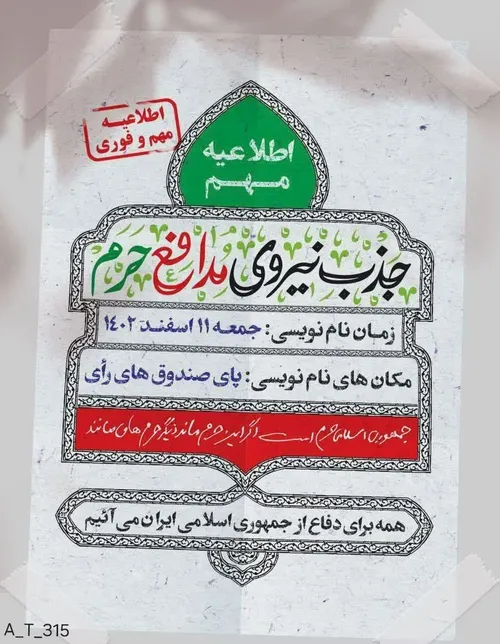 اطلاعیه
مهم و فوری
اطلاعیه
مهم
جذب نیروی مدافع حرم
زمان نام نویسی: جمعه ۱۱ اسفند ۱۴۰۲
مکان های نام نویسی: پای صندوق های رأی
جمهوری اسلامی حرم است اگر این حرم ماند دیگر حرم ها می مانند
همه برای دفاع از جمهوری اسلامی ایران می آئیم
A_T_315